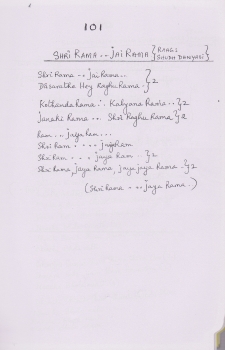 101
SHRI RAMA -- JAI RAMA } RAAG:
SUDDH DANYASI
Shri Rama -- jai Rama.. } 2
Dasaratha Hey Raghu Rama.
Kothanda Rama.. Kalyana Rama.. } 2
Janaki Rama ... Shri Raghu Rama } 2
Ram... jaya ram...
Shri Ram .... jayaRam
Shri Ram .... jaya Ram. } 2
Shri Rama, jaya Rama, jaya jaya Rama. } 2
(Shri Rama ---- jaya Rama..)